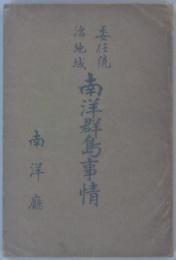 委任統
治地域
南洋群島事情
南洋廳